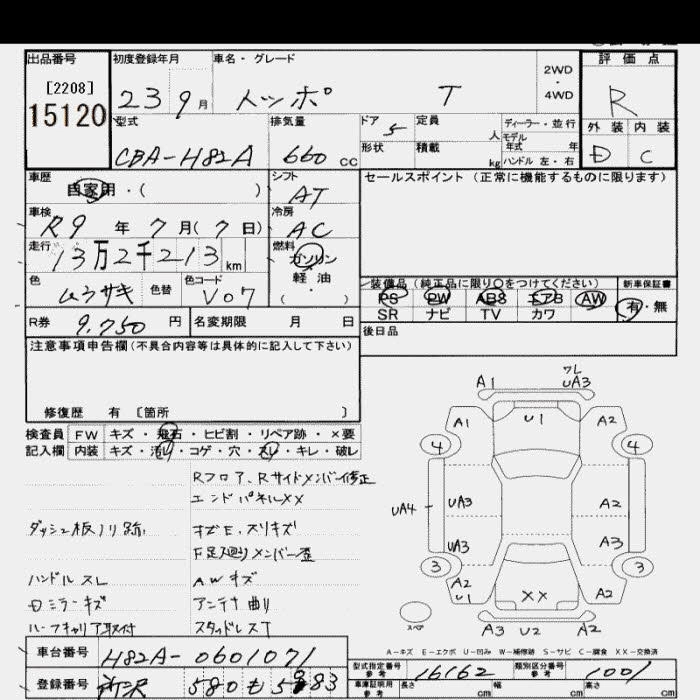 出品番号
[2208]
15120
初度登録年月
23 9月
車名・グレード
トッポ T
2WD
・
4WD
評価点
R
外装 内装
D C
型式
CBA-H82A
排気量
660 cc
ドア 5
定員 人
形状
積載 kg
ディーラー・並行
モデル年式 年
ハンドル 左・右
車歴
自家用・( )
シフト
AT
車検
R9 年 7 月(7日)
冷房
AC
走行
13万2千213 km
燃料
ガソリン
軽油
(・)
色
ムラサキ
色替
色コード
V07
R券 9,750 円
名変期限 月 日
セールスポイント(正常に機能するものに限ります)
装備品(純正品に限り○をつけてください)
PS PW ABS エアB AW
SR ナビ TV カワ
新車保証書
有・無
後日品
注意事項申告欄(不具合内容等は具体的に記入して下さい)
修復歴 有 〔箇所 〕
検査員記入欄
FW キズ・飛石・ヒビ割・リペア跡・×要
内装 キズ・汚レ・コゲ・穴・スレ・キレ・破レ
Rフロア、Rサイドメンバー修正
エンドパネルXX
ダッシュ板ノリ跡
キズE、スリキズ
F足廻りメンバー歪
ハンドルスレ
AWキズ
Dミラーキズ
アンテナ曲り
ルーフキャリア取付
スタッドレスT
A1
ワレ
UA3
A1
U1
A2
4
4
UA4
UA3
A2
UA3
A3
3
3
A2
U1
XX
A2
スペア
A3 U2 A2
A-キズ E-エクボ U-凹み W-補修跡 S-サビ C-腐食 XX-交換済
車台番号 H82A-0601071
登録番号 所沢 580 も 5983
型式指定番号
参考
16162
類別区分番号
参考
1001
車庫証明用
参考
長さ cm 幅 cm 高さ cm